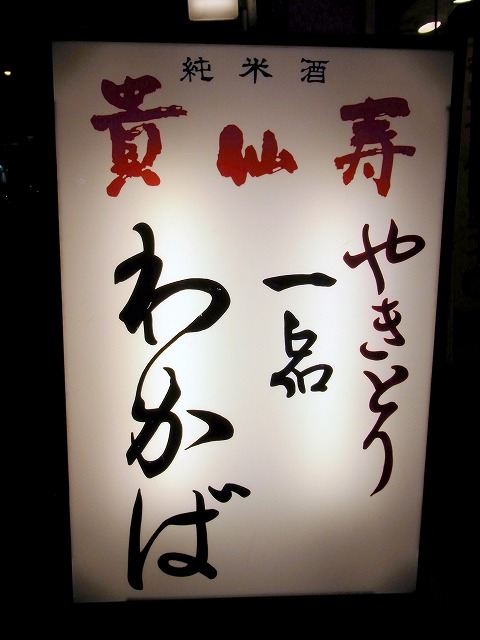 純米酒
貴仙寿
やきとり
一品
わかば